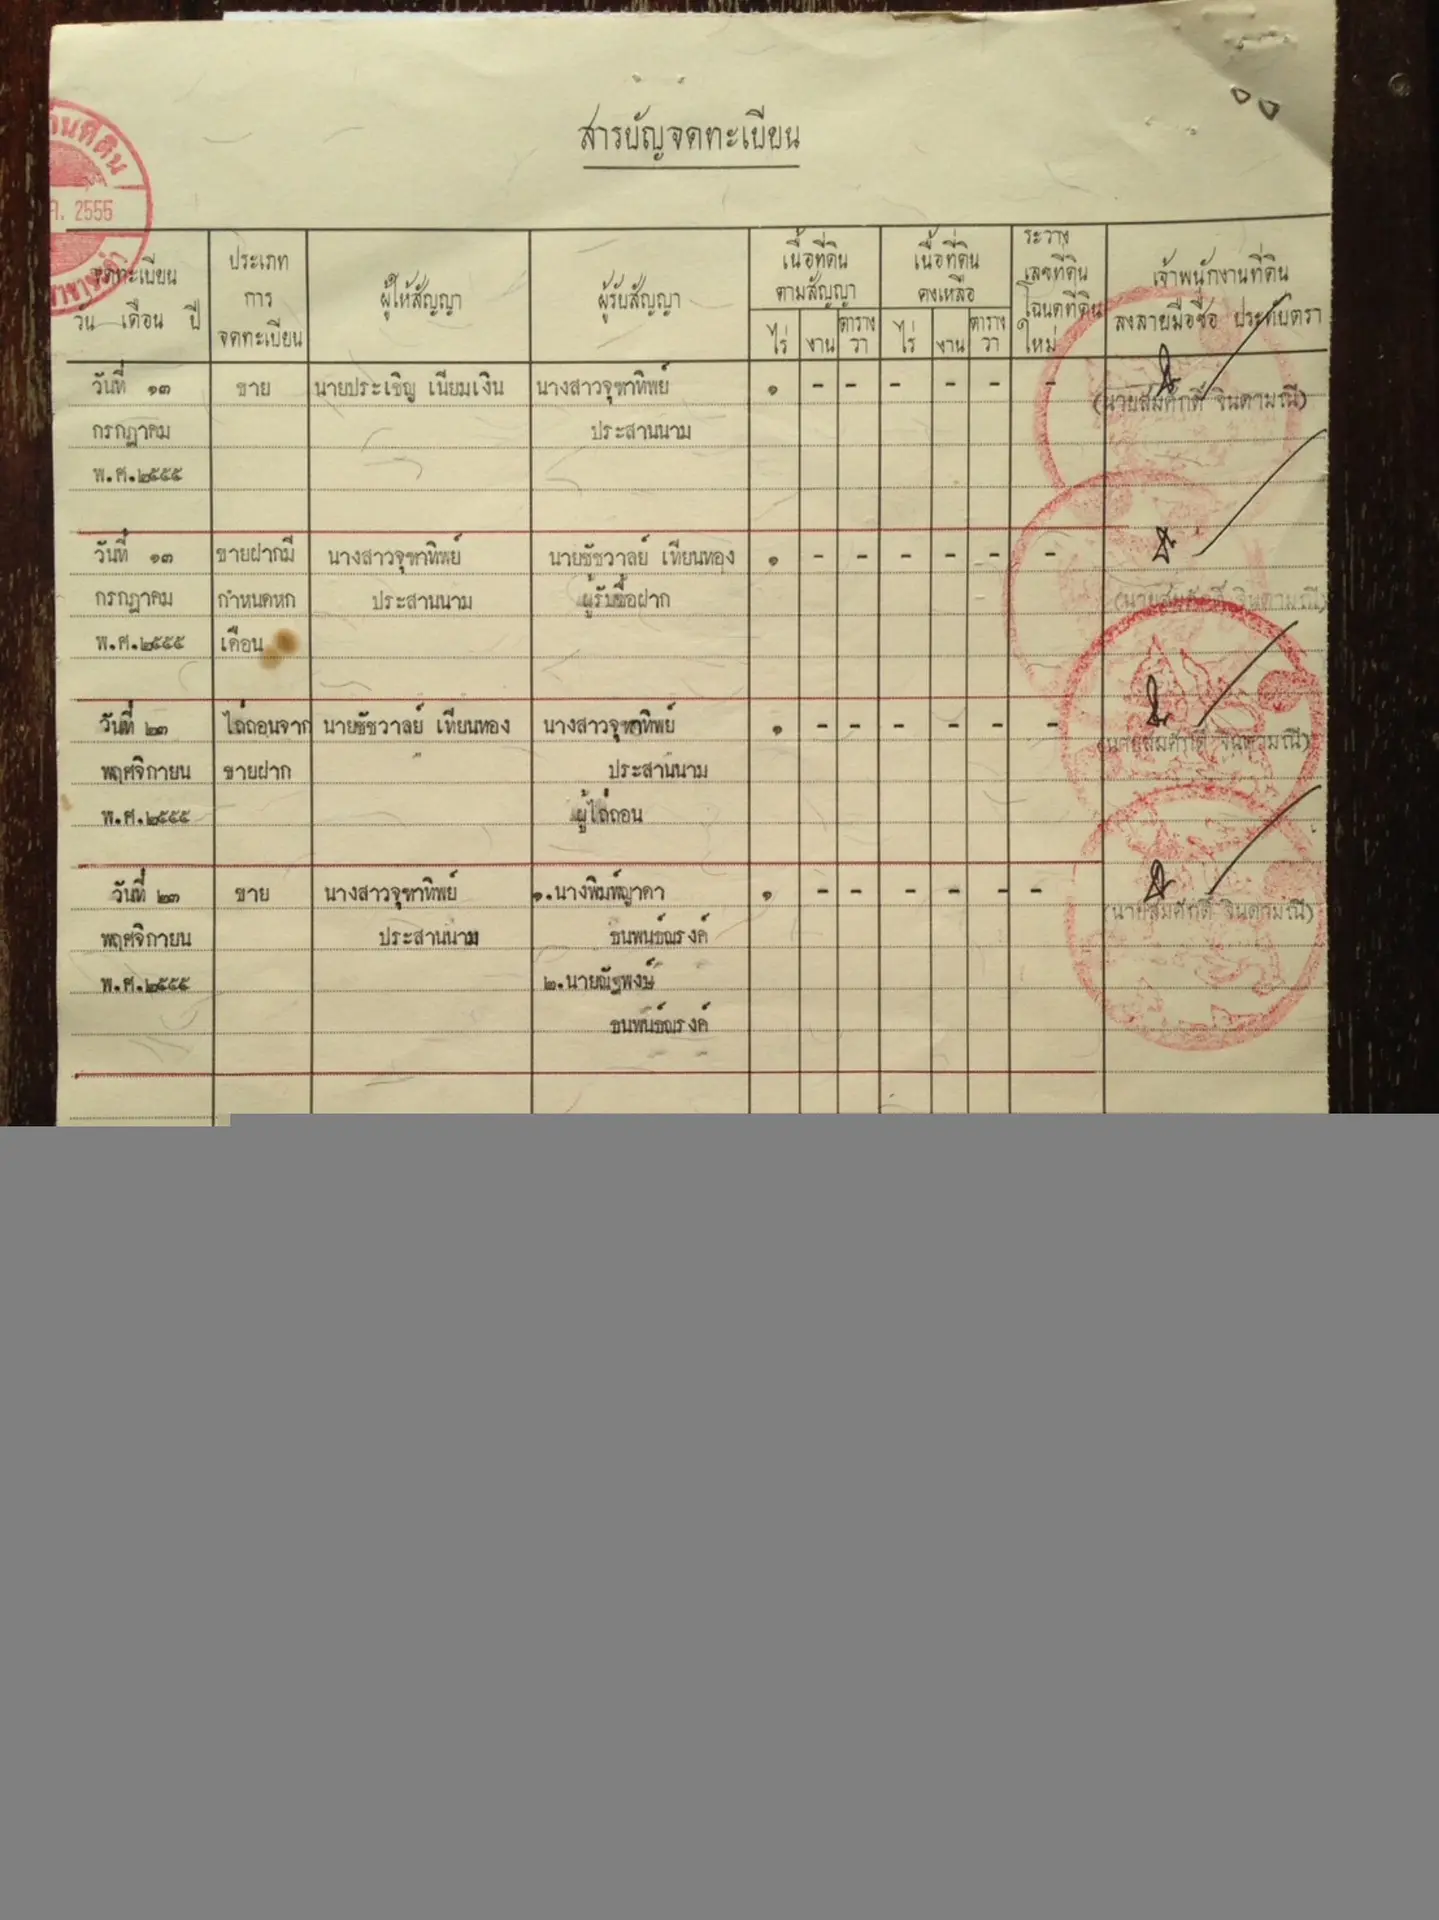 สารบัญจดทะเบียน
ค. 2555
จดทะเบียน
วัน เดือน ปี
ประเภท
การ
จดทะเบียน
ผู้ให้สัญญา
ผู้รับสัญญา
เนื้อที่ดิน
ตามสัญญา
ไร่ งาน ตาราง
วา
เนื้อที่ดิน
คงเหลือ
ไร่ งาน ตาราง
วา
ระวาง
เลขที่ดิน
โฉนดที่ดิน
ใหม่
เจ้าพนักงานที่ดิน
ลงลายมือชื่อ ประทับตรา
วันที่ ๑๓ ขาย นายประเชิญ เนียมเงิน นางสาวจุฑาทิพย์ ๑ - - - - - -
(นายสมศักดิ์ จินดามณี)
กรกฎาคม ประสานนาม
พ.ศ.๒๕๕๕
วันที่ ๑๓ ขายฝากมี นางสาวจุฑาทิพย์ นายชัชวาลย์ เทียนทอง ๑ - - - - - -
กรกฎาคม กำหนดหก ประสานนาม ผู้รับซื้อฝาก (นายสมศักดิ์ จินดามณี)
พ.ศ.๒๕๕๕ เดือน
วันที่ ๒๓ ไถ่ถอนจาก นายชัชวาลย์ เทียนทอง นางสาวจุฑาทิพย์ ๑ - - - - - -
(นายสมศักดิ์ จินดามณี)
พฤศจิกายน ขายฝาก ประสานนาม
พ.ศ.๒๕๕๕ ผู้ไถ่ถอน
วันที่ ๒๓ ขาย นางสาวจุฑาทิพย์ ๑.นางพิมพ์ญาดา ๑ - - - - - -
(นายสมศักดิ์ จินดามณี)
พฤศจิกายน ประสานนาม ธนพนธ์ณรงค์
พ.ศ.๒๕๕๕ ๒.นายณัฐพงษ์
ธนพนธ์ณรงค์